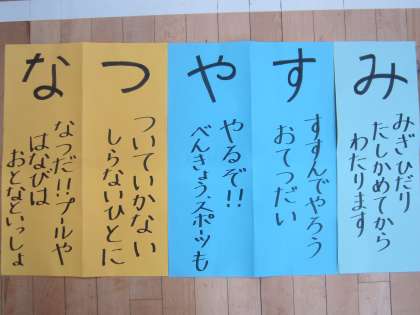 なつやすみ
なつだ!!プールや
はなびは
おとなといっしょ
ついていかない
しらないひとに
やるぞ!!
べんきょう、スポーツも
すすんでやろう
おてつだい
みぎひだり
たしかめてから
わたります